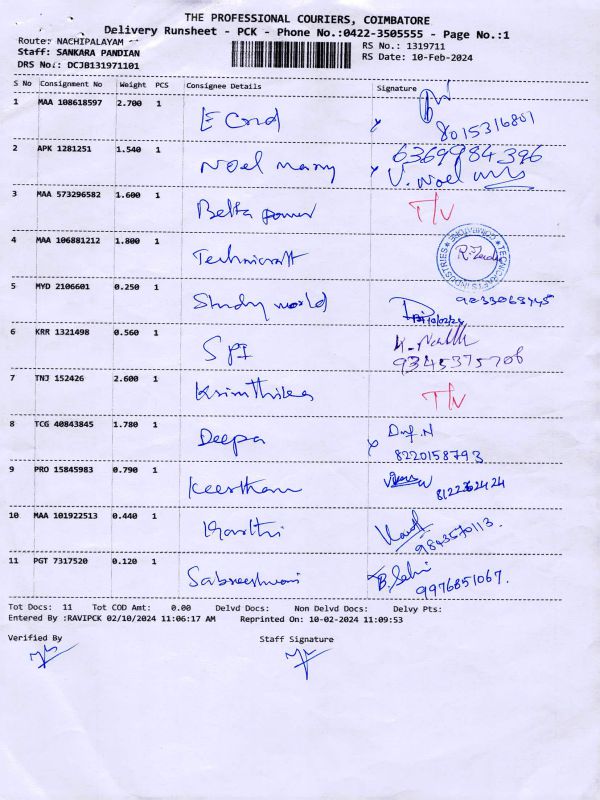 THE PROFESSIONAL COURIERS, COIMBATORE
Delivery Runsheet - PCK - Phone No.:0422-3505555 - Page No.:1
Route: NACHIPALAYAM
Staff: SANKARA PANDIAN
DRS No.: DCJB131971101
RS No.: 1319711
RS Date: 10-Feb-2024
S No Consignment No Weight PCS Consignee Details Signature
1 MAA 108618597 2.700 1
8015316801
2 APK 1281251 1.540 1 Noel mary 6369984396
V. Noel
3 MAA 573296582 1.600 1 Belta power T/V
4 MAA 106881212 1.800 1 Technicraft
TECHNICRAFTS INDUSTRIES ★ COIMBATORE ★
5 MYD 2106601 0.250 1 Study world
10/02/24
6 KRR 1321498 0.560 1 SPI
9345375706
7 TNJ 152426 2.600 1 Krinthika T/V
8 TCG 40843845 1.780 1 Deepa
8220158793
9 PRO 15845983 0.790 1 Keerthana
8122362424
10 MAA 101922513 0.440 1 Karthi
9843570113.
11 PGT 7317520 0.120 1 Sabareeshwari
9976851067.
Tot Docs: 11 Tot COD Amt: 0.00 Delvd Docs: Non Delvd Docs: Delvy Pts:
Entered By :RAVIPCK 02/10/2024 11:06:17 AM Reprinted On: 10-02-2024 11:09:53
Verified By Staff Signature